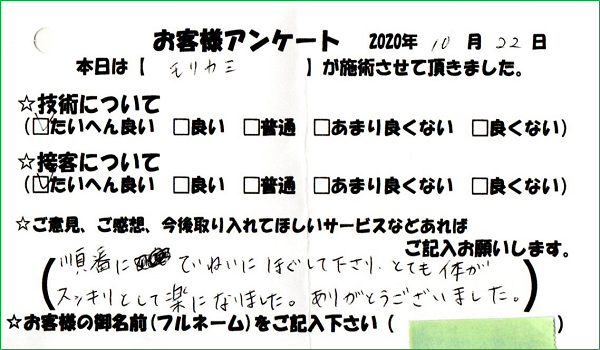 お客様アンケート 2020年 10月 22日
本日は【 モリカミ 】が施術させて頂きました。
☆技術について
(☑たいへん良い □良い □普通 □あまり良くない □良くない)
☆接客について
(☑たいへん良い □良い □普通 □あまり良くない □良くない)
☆ご意見、ご感想、今後取り入れてほしいサービスなどあれば
ご記入お願いします。
(順番に ていねいに ほぐして下さり、とても体が
スッキリとして楽になりました。ありがとうございました。)
☆お客様の御名前(フルネーム)をご記入下さい( )